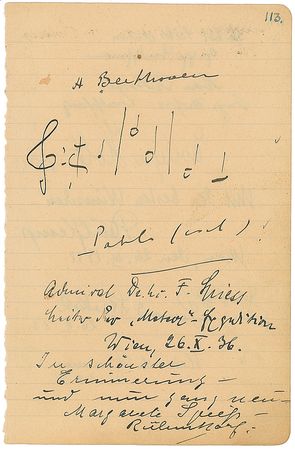 113.
Beethoven
Admiral Dr. h.c. F. Spiess
Leiter der „Meteor“-Expedition
Wien, 26.X.36.
In schönster
Erinnerung –
und nun ganz neu –
Margarete Spieß –